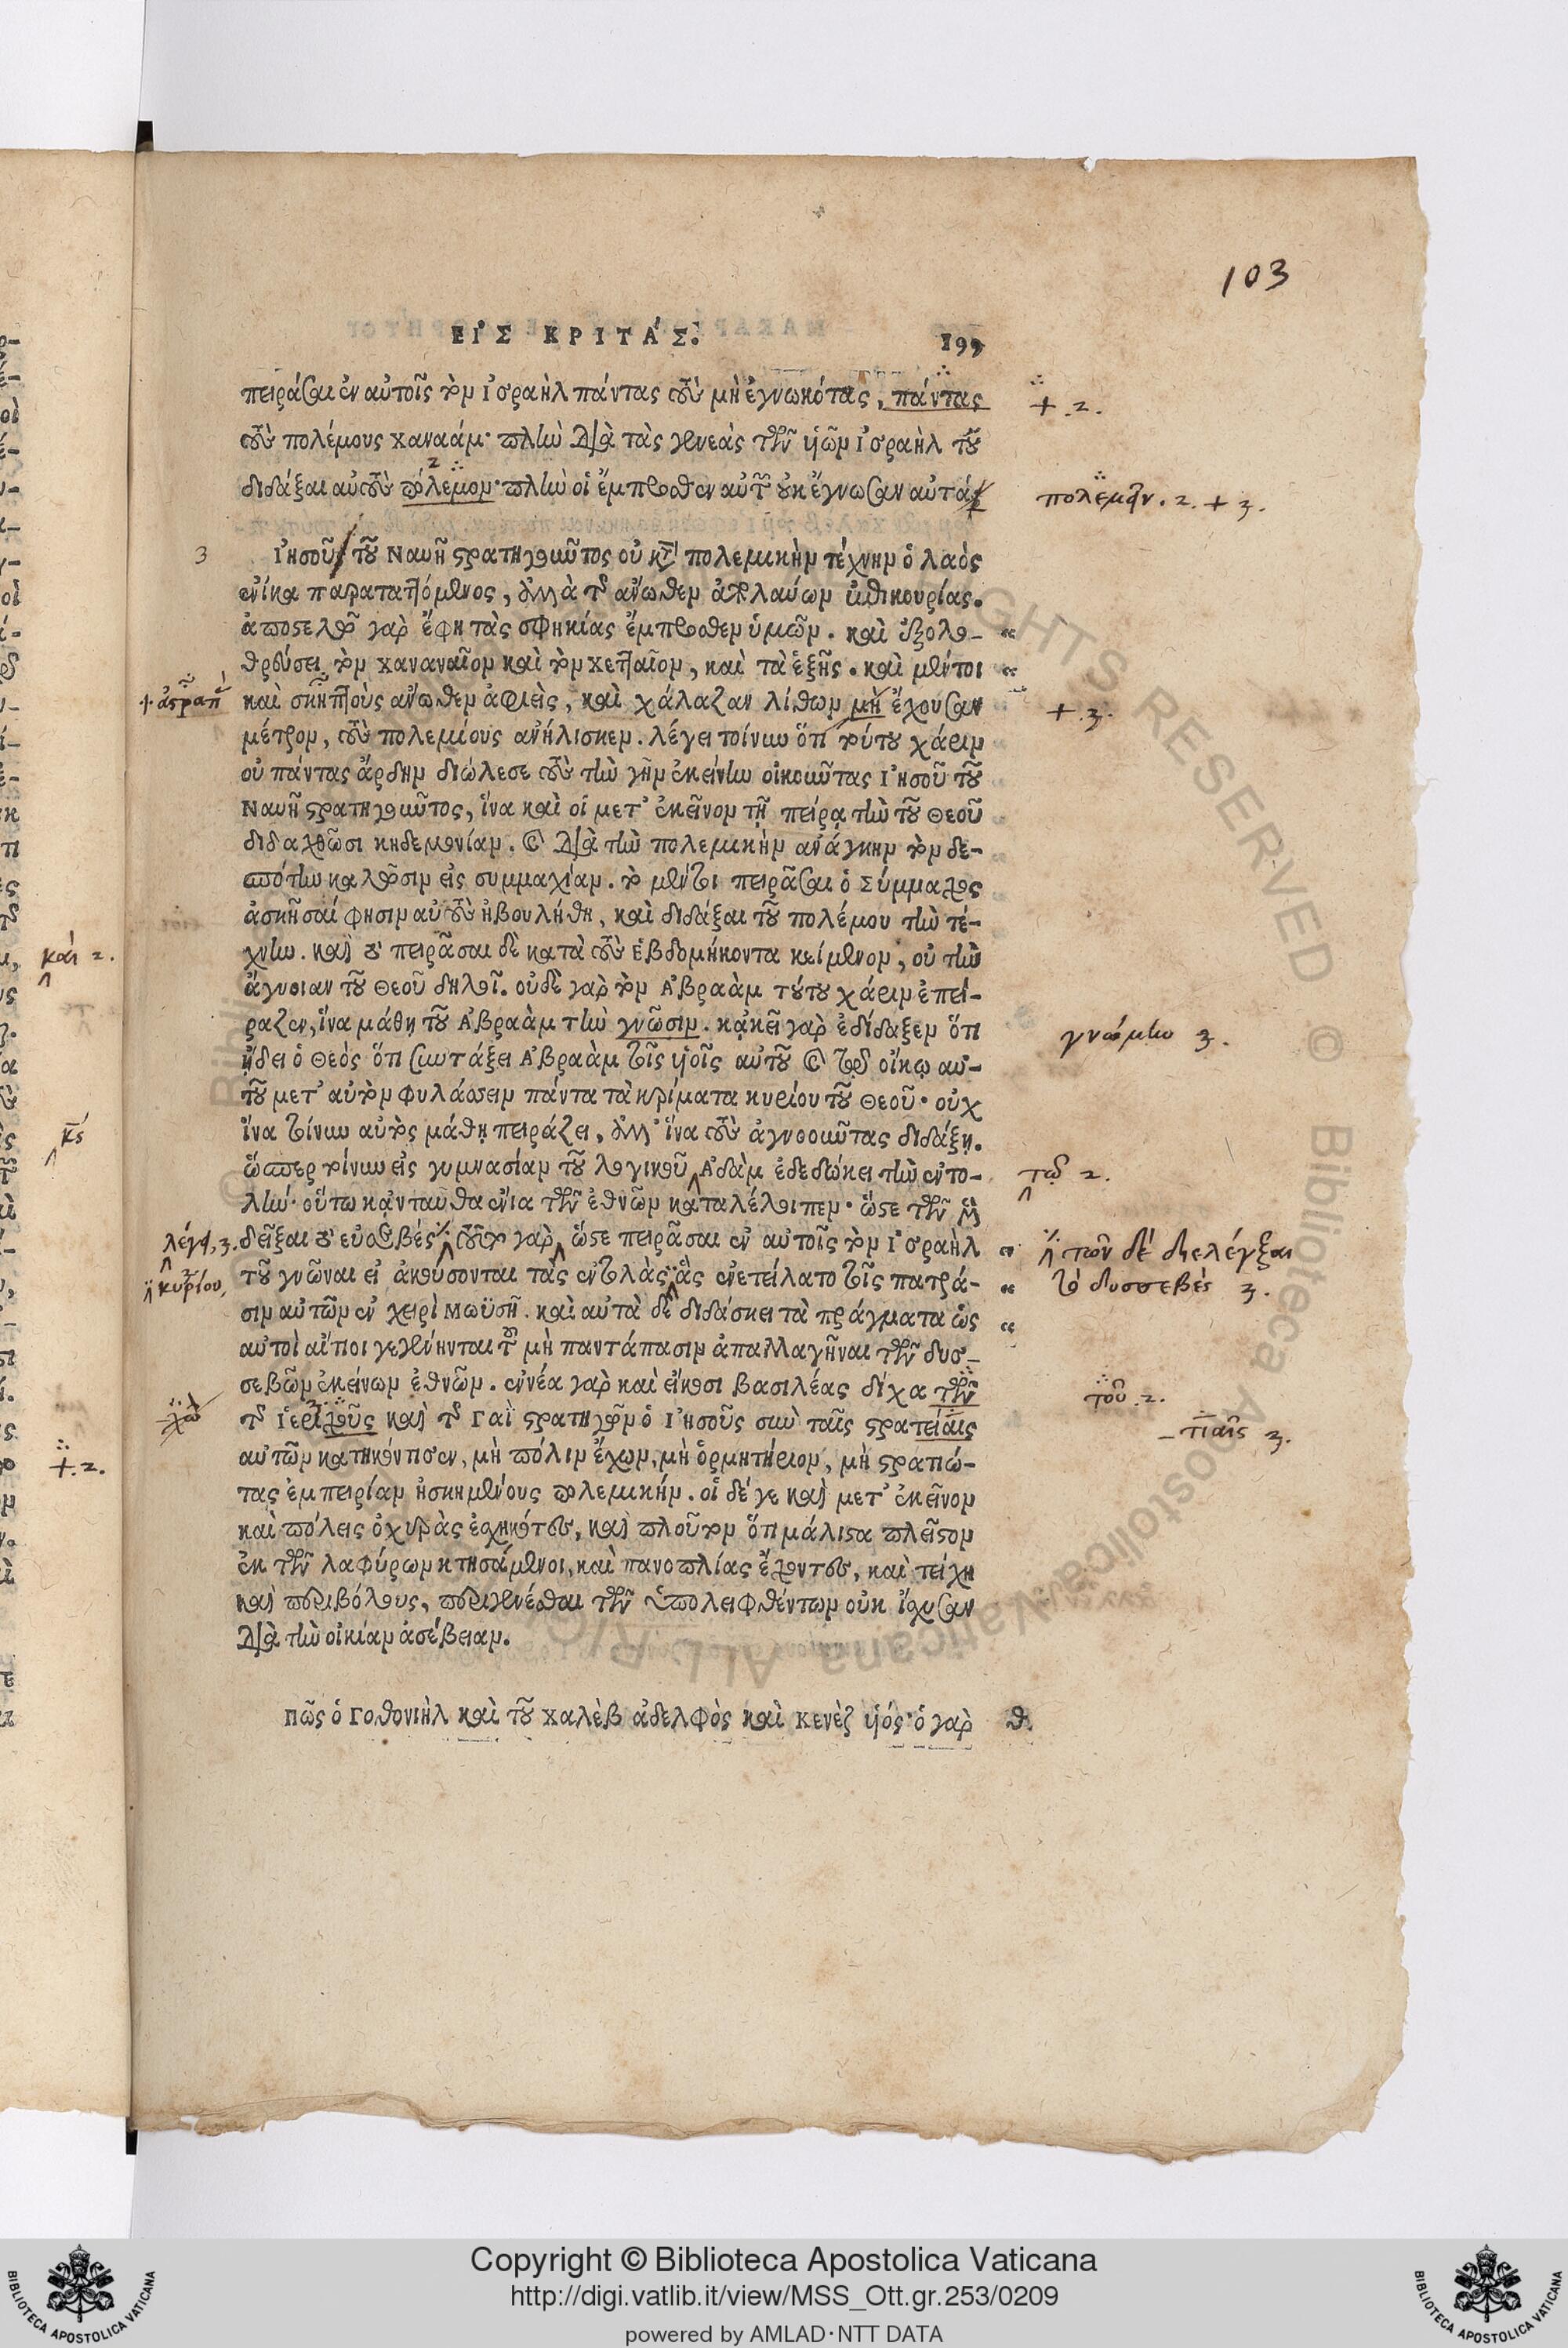 103
ΕΙ᾿Σ ΚΡΙΤΑ΄Σ.
199
πειράσαι ἐν αὐτοῖς τὸν Ἰσραὴλ πάντας τοὺς μὴ ἐγνωκότας, πάντας
+ .2.
τοὺς πολέμους χαναάμ· πλὴν διὰ τὰς γενεὰς τῶν υἱῶν Ἰσραὴλ τοῦ
διδάξαι αὐτοὺς πόλεμον· πλὴν οἱ ἔμπροσθεν αὐτῶν οὐκ ἔγνωσαν αὐτά
2
πολεμεῖν . 2. + 3.
3
Ἰησοῦ τοῦ Ναυῆ στρατηγοῦντος οὐ κατὰ πολεμικὴν τέχνην ὁ λαὸς
ἐνίκα παραταττόμενος, ἀλλὰ τῆς ἄνωθεν ἀπολαύων ἐπικουρίας.
ἀποστελῶ γὰρ ἔφη τὰς σφηκίας ἔμπροσθεν ὑμῶν. καὶ ἐξολο- "
θρεύσει τὸν χαναναῖον καὶ τὸν χετταῖον, καὶ τὰ ἑξῆς. καὶ μέντοι "
καὶ σκηπτοὺς ἄνωθεν ἀφιεὶς, καὶ χάλαζαν λίθων μὴ ἔχουσαν
+ .3.
μέτρον, τοὺς πολεμίους ἀνήλισκεν. λέγει τοίνυν ὅτι τούτου χάριν
οὐ πάντας ἄρδην διώλεσε τοὺς τὴν γῆν ἐκείνην οἰκοῦντας Ἰησοῦ τοῦ
Ναυῆ στρατηγοῦντος, ἵνα καὶ οἱ μετ᾿ ἐκεῖνον τῇ πείρᾳ τὴν τοῦ Θεοῦ
διδαχθῶσι κηδεμονίαν. καὶ διὰ τὴν πολεμικὴν ἀνάγκην τὸν δε-
σπότην καλῶσιν εἰς συμμαχίαν. τὸ μέντοι πειρᾶσαι ὁ Σύμμαχος
ἀσκῆσαί φησιν αὐτοὺς ἠβουλήθη, καὶ διδάξαι τοῦ πολέμου τὴν τέ-
χνην. καὶ τὸ πειρᾶσαι δὲ κατὰ τοὺς ἑβδομήκοντα κείμενον, οὐ τὴν
ἄγνοιαν τοῦ Θεοῦ δηλοῖ. οὐδὲ γὰρ τὸν Ἀβραὰμ τούτου χάριν ἐπεί-
ραζεν, ἵνα μάθῃ τοῦ Ἀβραὰμ τὴν γνῶσιν. κᾀκεῖ γὰρ ἐδίδαξεν ὅτι
γνώμην 3.
ᾔδει ὁ Θεὸς ὅτι συντάξει Ἀβραὰμ τοῖς υἱοῖς αὐτοῦ καὶ τῷ οἴκῳ αὐ-
τοῦ μετ᾿ αὐτὸν φυλάσσειν πάντα τὰ κρίματα κυρίου τοῦ Θεοῦ· οὐχ
ἵνα τοίνυν αὐτὸς μάθῃ πειράζει, ἀλλ᾿ ἵνα τοὺς ἀγνοοῦντας διδάξῃ.
ὥσπερ τοίνυν εἰς γυμνασίαν τοῦ λογικοῦ Ἀδὰμ ἐδεδώκει τὴν ἐντο-
τῷ 2.
λήν· οὕτω κᾀνταῦθα ἔνια τῶν ἐθνῶν καταλέλοιπεν· ὥστε τῶν μὲν
δεῖξαι τὸ εὐσεβές· τοῦτο γὰρ, ὥστε πειρᾶσαι ἐν αὐτοῖς τὸν Ἰσραὴλ "
τῶν δέ διελέγξαι
τοῦ γνῶναι εἰ ἀκούσονται τὰς ἐντολὰς ἃς ἐνετείλατο τοῖς πατρά- "
κυρίου,
τὸ δυσσεβές 3.
σιν αὐτῶν ἐν χειρὶ Μωϋσῆ. καὶ αὐτὰ δὲ διδάσκει τὰ πράγματα ὡς "
αὐτοὶ αἴτιοι γεγένηνται τοῦ μὴ παντάπασιν ἀπαλλαγῆναι τῶν δυσ-
σεβῶν ἐκείνων ἐθνῶν. ἐννέα γὰρ καὶ εἴκοσι βασιλέας δίχα τῶν
τοῦ .2.
τῆς Ἱεριχοῦς καὶ τῆς Γαῒ στρατηγῶν ὁ Ἰησοῦς σὺν ταῖς στρατείαις
-τιαῖς 3.
αὐτῶν κατηκόντισεν, μὴ πόλιν ἔχων, μὴ ὁρμητήριον, μὴ στρατιώ-
τας ἐμπειρίαν ἠσκημένους πολεμικήν. οἱ δέ γε καὶ μετ᾿ ἐκεῖνον
καὶ πόλεις ὀχυρὰς ἐσχηκότες, καὶ πλοῦτον ὅτι μάλιστα πλεῖστον
ἐκ τῶν λαφύρων κτησάμενοι, καὶ πανοπλίας ἔχοντες, καὶ τείχη
καὶ περιβόλους, περιγενέσθαι τῶν ὑπολειφθέντων οὐκ ἴσχυσαν
διὰ τὴν οἰκίαν ἀσέβειαν.
Πῶς ὁ Γοθονιὴλ καὶ τοῦ χαλὲβ ἀδελφὸς καὶ Κενὲζ υἱός· ὁ γὰρ θ.
καὶ 2.
+.2.
Copyright © Biblioteca Apostolica Vaticana
http://digi.vatlib.it/view/MSS_Ott.gr.253/0209
powered by AMLAD·NTT DATA
BIBLIOTECA APOSTOLICA VATICANA
BIBLIOTECA APOSTOLICA VATICANA
© Biblioteca Apostolica Vaticana ALL RIGHTS RESERVED